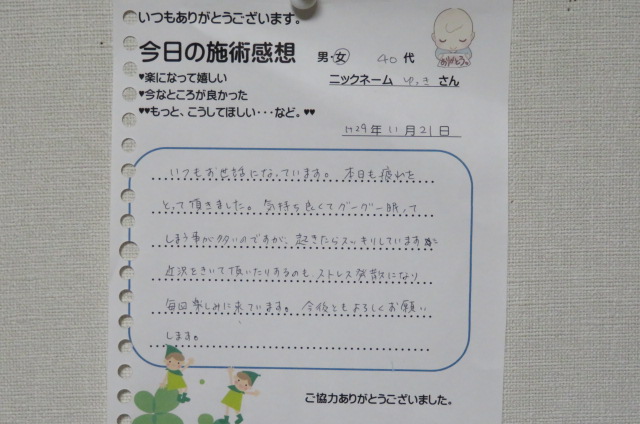 いつもありがとうございます。
今日の施術感想
男・女 40代
ありがとう。
♥楽になって嬉しい
ニックネーム ゆっき さん
♥今なところが良かった
♥♥もっと、こうしてほしい・・・など。♥♥
H29年11月21日
いつもお世話になっています。本日も疲れを
とって頂きました。気持ち良くてグーグー眠って
しまう事が多いのですが、起きたらスッキリしています
近況をきいて頂いたりするのも、ストレス発散になり
毎回楽しみに来ています。今後ともよろしくお願い
します。
ご協力ありがとうございました。